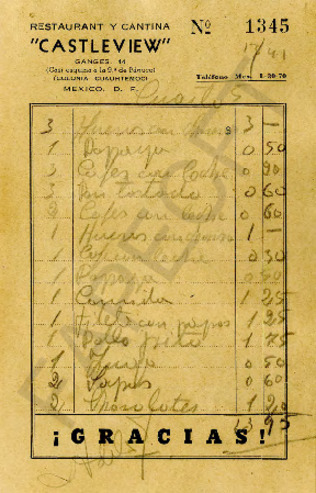 RESTAURANT Y CANTINA Nº 1345
"CASTLEVIEW"
GANGES, 44
(Casi esquina a la 9.ª de Pánuco)
(COLONIA CUAUHTEMOC)
MEXICO, D. F.
Teléfono Mex. L-20-70
Cuarto 5
3 Huevos con 3 —
1 Papaya 0 50
3 Cafes con leche 0 90
3 Pan tostado 0 60
2 Cafes con leche 0 60
1 Huevos 1 —
1 Cafe con leche 0 30
1 Papaya 0 50
1 Comida 1 25
1 Filete con papas 1 25
1 Pollo frito 1 75
1 Jugo 0 50
2 Sopas 0 60
2 Chocolates 1 20
13 95
¡GRACIAS!